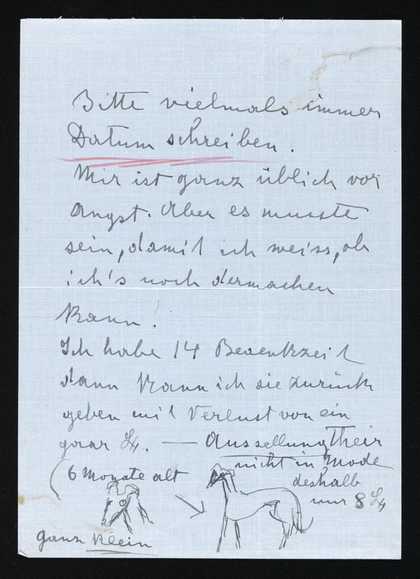 Bitte vielmals immer
Datum schreiben.
Mir ist ganz üblich vor
Angst. Aber es musste
sein, damit ich weiss, ob
ich's noch dermachen
kann!
Ich habe 14 Bedenkzeit
dann kann ich sie zurück
geben mit Verlust von ein
paar £. — Aussellungtheir
nicht in Mode
(6 Monate alt
deshalb
nur 8 £
ganz klein